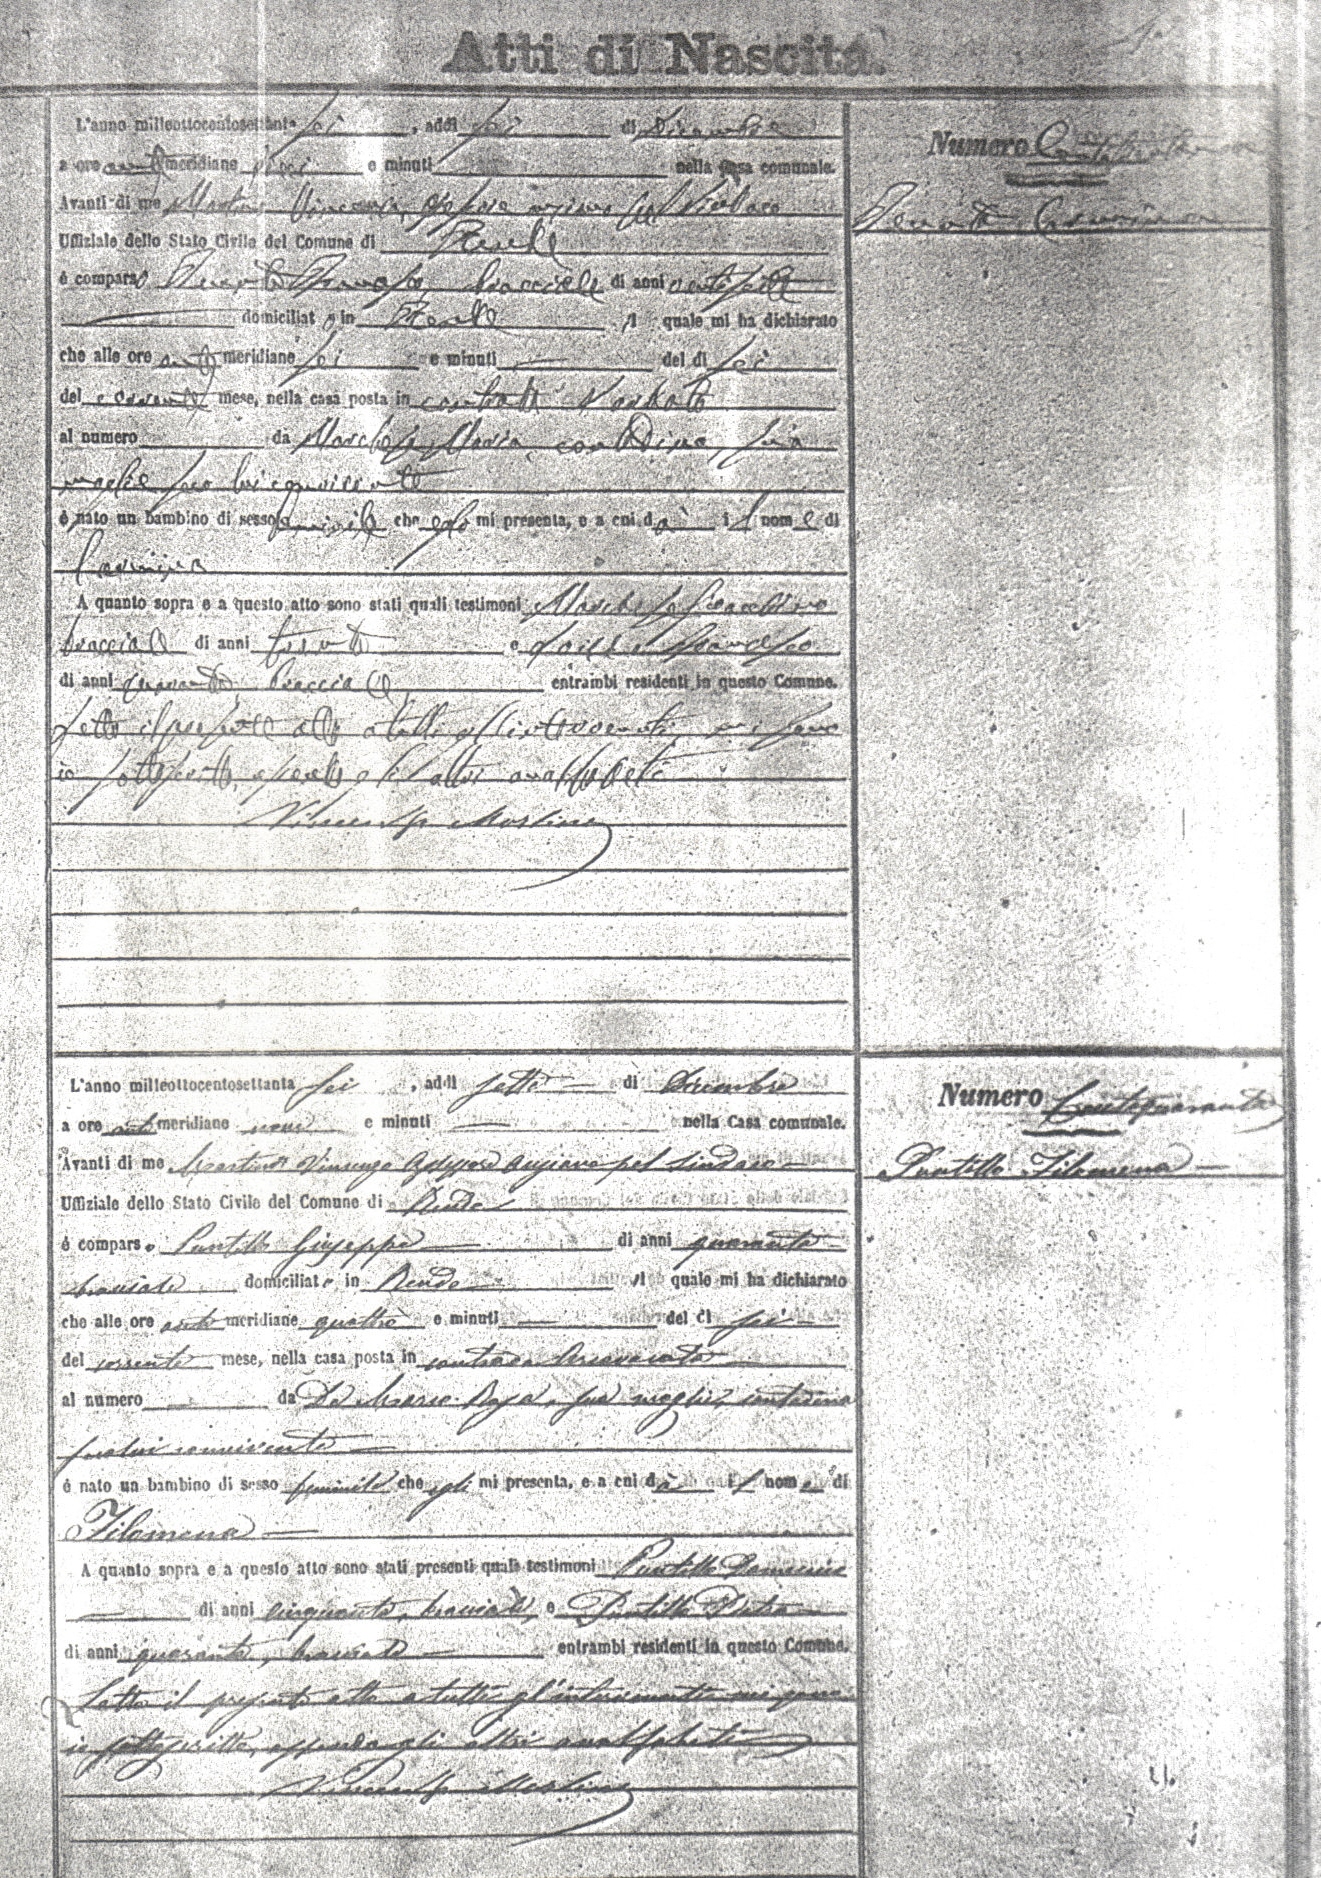 Atti di Nascita.
L'anno milleottocentosettanta sei, addì sei di Dicembre
a ore anti meridiane dieci e minuti nella Casa comunale.
Avanti di me Martino Vincenzo, Assessore
Uffiziale dello Stato Civile del Comune di Rende
é comparso bracciale di anni ventisette
domiciliato in Rende il quale mi ha dichiarato
che alle ore anti meridiane sei e minuti — del dì sei
del corrente mese, nella casa posta in contrada
al numero da Maria, contadina, sua
moglie seco lui convivente
é nato un bambino di sesso feminile che egli mi presenta, e a cui dà il nome di
Carmina
A quanto sopra e a questo atto sono stati quali testimoni
bracciale di anni trenta e Francesco
di anni quaranta bracciale entrambi residenti in questo Comune.
Letto il presente atto a tutti gl'intervenuti, mi sono
io sottoscritto, essendo gli altri analfabeti
Vincenzo Martino
Numero
Carmina
L'anno milleottocentosettanta sei, addì sette — di Dicembre
a ore anti meridiane nove e minuti — nella Casa comunale.
Avanti di me Martino Vincenzo Assessore anziano pel Sindaco
Uffiziale dello Stato Civile del Comune di Rende
é comparso Puntillo Giuseppe — di anni quaranta
bracciale domiciliato in Rende il quale mi ha dichiarato
che alle ore anti meridiane quattro e minuti — del dì sei —
del corrente mese, nella casa posta in contrada
al numero da De Rosa, sua moglie, contadina
seco lui convivente —
é nato un bambino di sesso feminile che egli mi presenta, e a cui dà il nome di
Filomena —
A quanto sopra e a questo atto sono stati presenti quali testimoni Puntillo Domenico
— di anni cinquanta, bracciale, e Puntillo Pietro
di anni quaranta, bracciale — entrambi residenti in questo Comune.
Letto il presente atto a tutti gl'intervenuti mi sono
io sottoscritto, essendo gli altri analfabeti
Vincenzo Martino
Numero Centoquaranta
Puntillo Filomena —